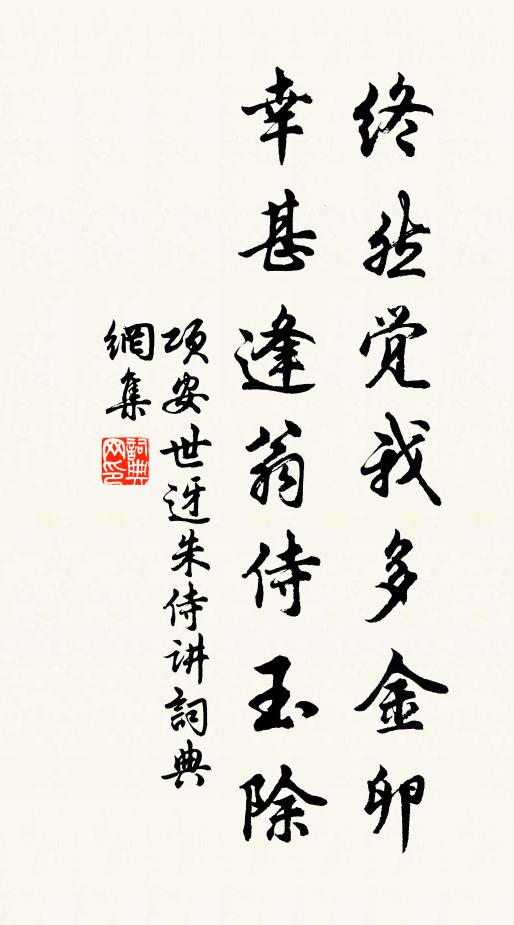 终然觉我多金卵
幸甚逢翁侍玉除
项安世迓朱侍讲詞典
網集
詞典
网印